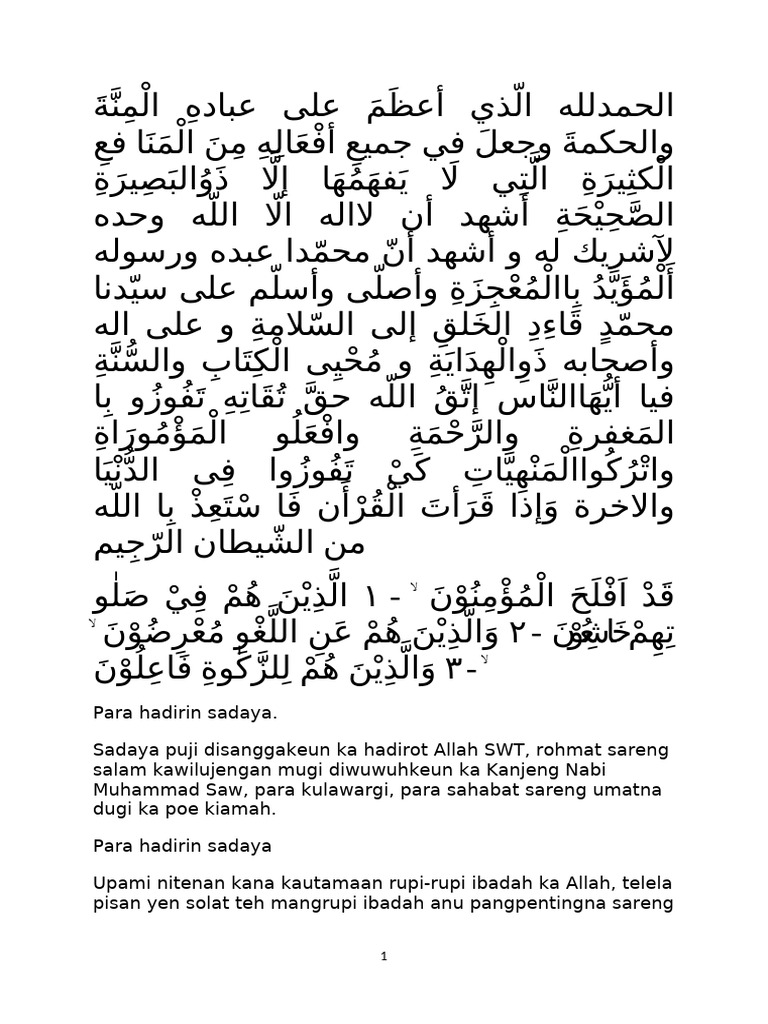 الحمدلله الّذي أعظَمَ على عبادهِ الْمِنَّةَ
والحكمةَ وجعلَ في جميعِ أفْعَالِهِ مِنَ الْمَنَا فعِ
الْكثِيرَةِ الَّتِي لَا يَفهَمُهَا إلَّا ذَوُالبَصِيرَةِ
الصَّحِيْحَةِ أشهد أن لااله الّا اللّه وحده
لآشريك له و أشهد أنّ محمّدا عبده ورسوله
أَلْمُؤَيَّدُ بِاالْمُعْجِزَةِ وأصلّى وأسلّم على سيّدنا
محمّدٍ قَاءِدِ الخَلقِ إلى السّلامةِ و على اله
وأصحابه ذَوِالْهِدَايَةِ و مُحْيِى الْكِتَابِ والسُّنَّةِ
فيا أيُّهَاالنَّاس إتَّقُ اللّه حقَّ تُقَاتِهِ تَفُوزُو بِا
المَغفرةِ والرَّحْمَةِ وافْعَلُو الْمَؤْمُورَاةِ
واتْرُكُواالْمَنْهِيَّاتِ كَيْ تَفُوزُوا فِى الدُّنْيَا
والاخرة وَإذا قَرَأتَ الْقُرْأَن فَا سْتَعِذْ بِا اللّه
من الشّيطان الرّجِيم
قَدْ اَفْلَحَ الْمُؤْمِنُوْنَ ۙ - ١ الَّذِيْنَ هُمْ فِيْ صَلٰو
تِهِمْ خَاشِعُوْنَ - ٢ وَالَّذِيْنَ هُمْ عَنِ اللَّغْوِ مُعْرِضُوْنَ ۙ
ۙ - ٣ وَالَّذِيْنَ هُمْ لِلزَّكٰوةِ فَاعِلُوْنَ
Para hadirin sadaya.
Sadaya puji disanggakeun ka hadirot Allah SWT, rohmat sareng
salam kawilujengan mugi diwuwuhkeun ka Kanjeng Nabi
Muhammad Saw, para kulawargi, para sahabat sareng umatna
dugi ka poe kiamah.
Para hadirin sadaya
Upami nitenan kana kautamaan rupi-rupi ibadah ka Allah, telela
pisan yen solat teh mangrupi ibadah anu pangpentingna sareng
1